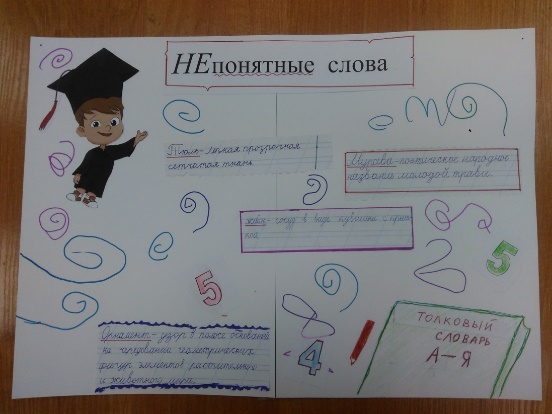 НЕпонятные слова
Тюль - легкая прозрачная
сетчатая ткань
Мурава - поэтическое народное
название молодой травы.
жбан - сосуд в виде кувшина с крыш-
кой
5
5
Орнамент - узор в полосе основанный
на чередовании геометрических
фигур элементов растительного
и животного мира.
4
ТОЛКОВЫЙ
СЛОВАРЬ
А-Я